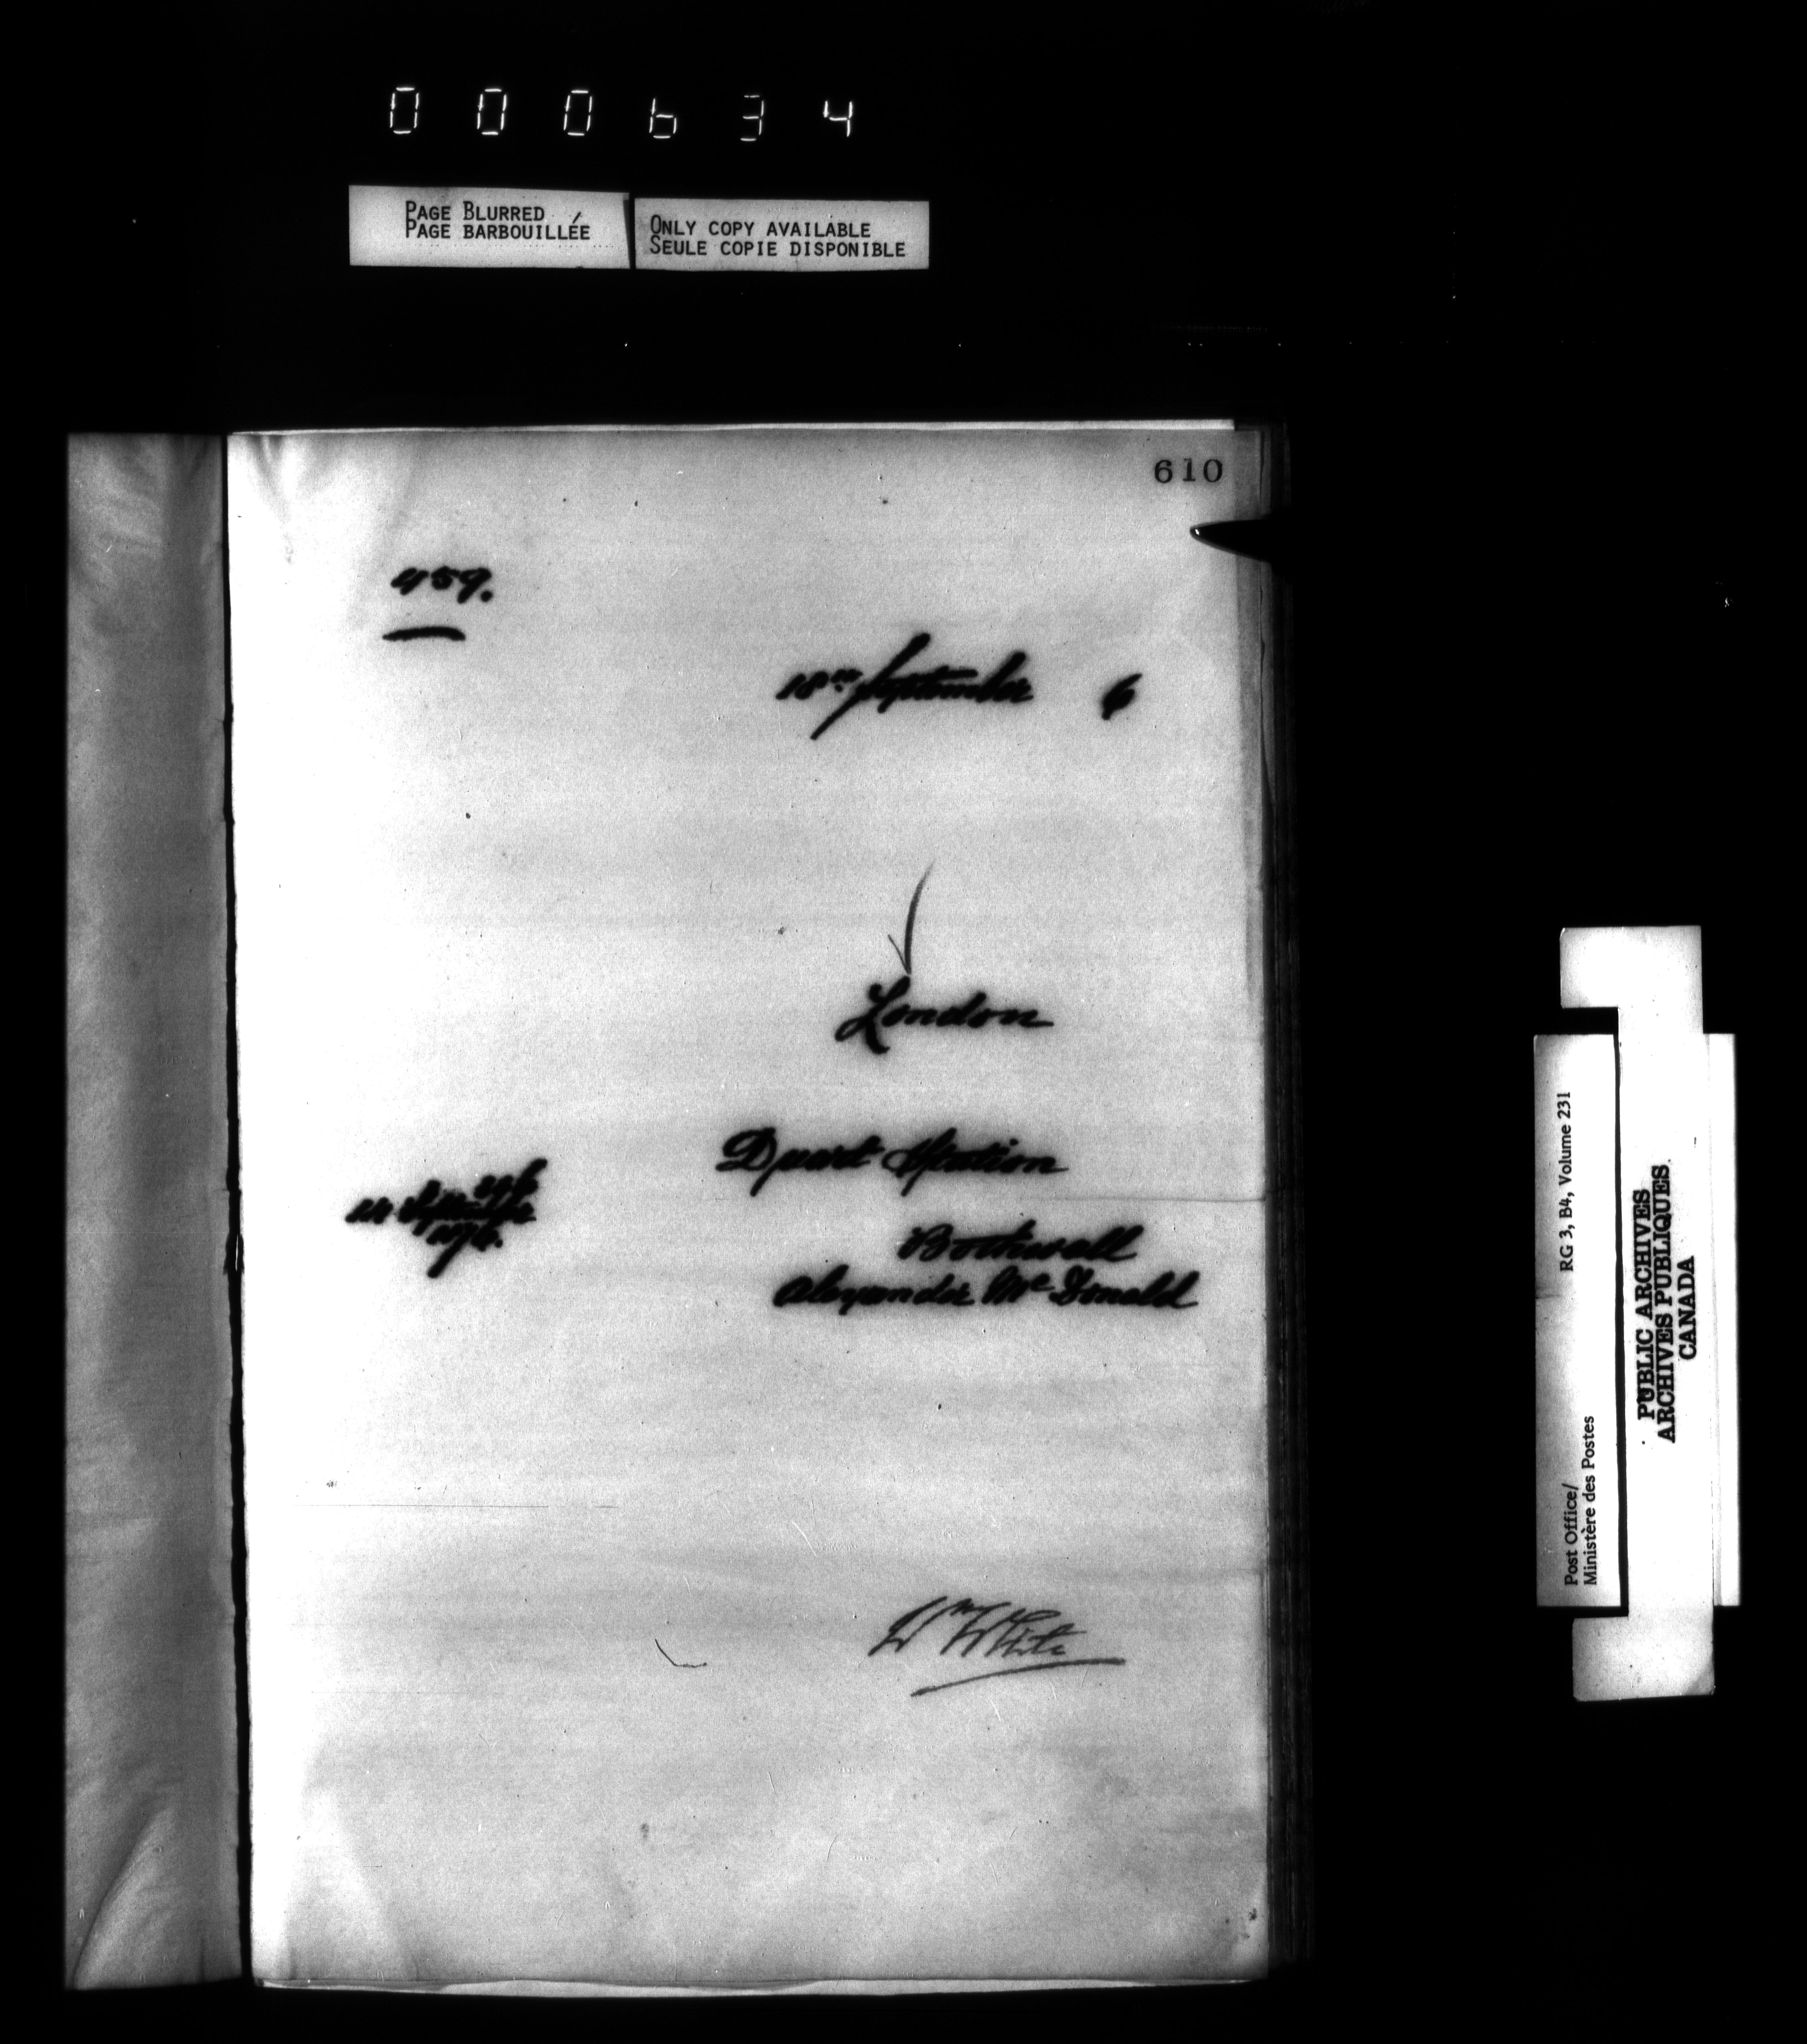 000634
PAGE BLURRED
PAGE BARBOUILLÉE
ONLY COPY AVAILABLE
SEULE COPIE DISPONIBLE
610
459.
18th September 6
London
Dpart Station
Bothwell
Alexander McDonald
14 September
1876.
Wm White
Post Office/
Ministère des Postes
RG 3, B4, Volume 231
PUBLIC ARCHIVES
ARCHIVES PUBLIQUES
CANADA